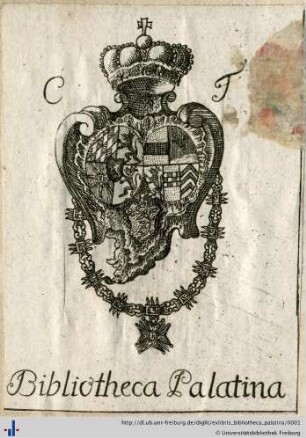 C T
Bibliotheca Palatina
http://dl.ub.uni-freiburg.de/diglit/exlibris_bibliotheca_palatina/0001
© Universitätsbibliothek Freiburg